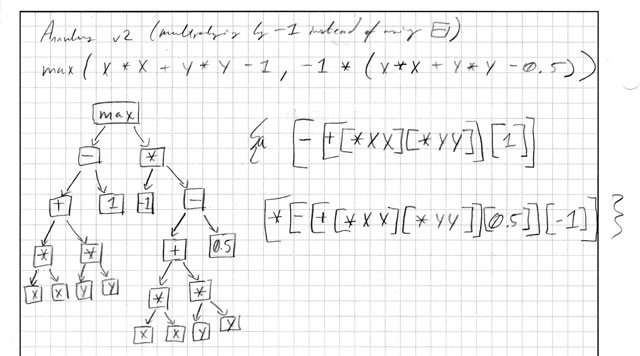 Annulus v2 (multiplying by -1 instead of using [-])
max( x*x + y*y - 1, -1 * (y*x + y*y - 0.5))
max
- *
+ 1 -1 -
* * + 0.5
x x y y * *
x x y y
{a [- [+ [* x x] [* y y]] [1]]
[* [- [+ [* x x] [* y y]] [0.5]] [-1]] }